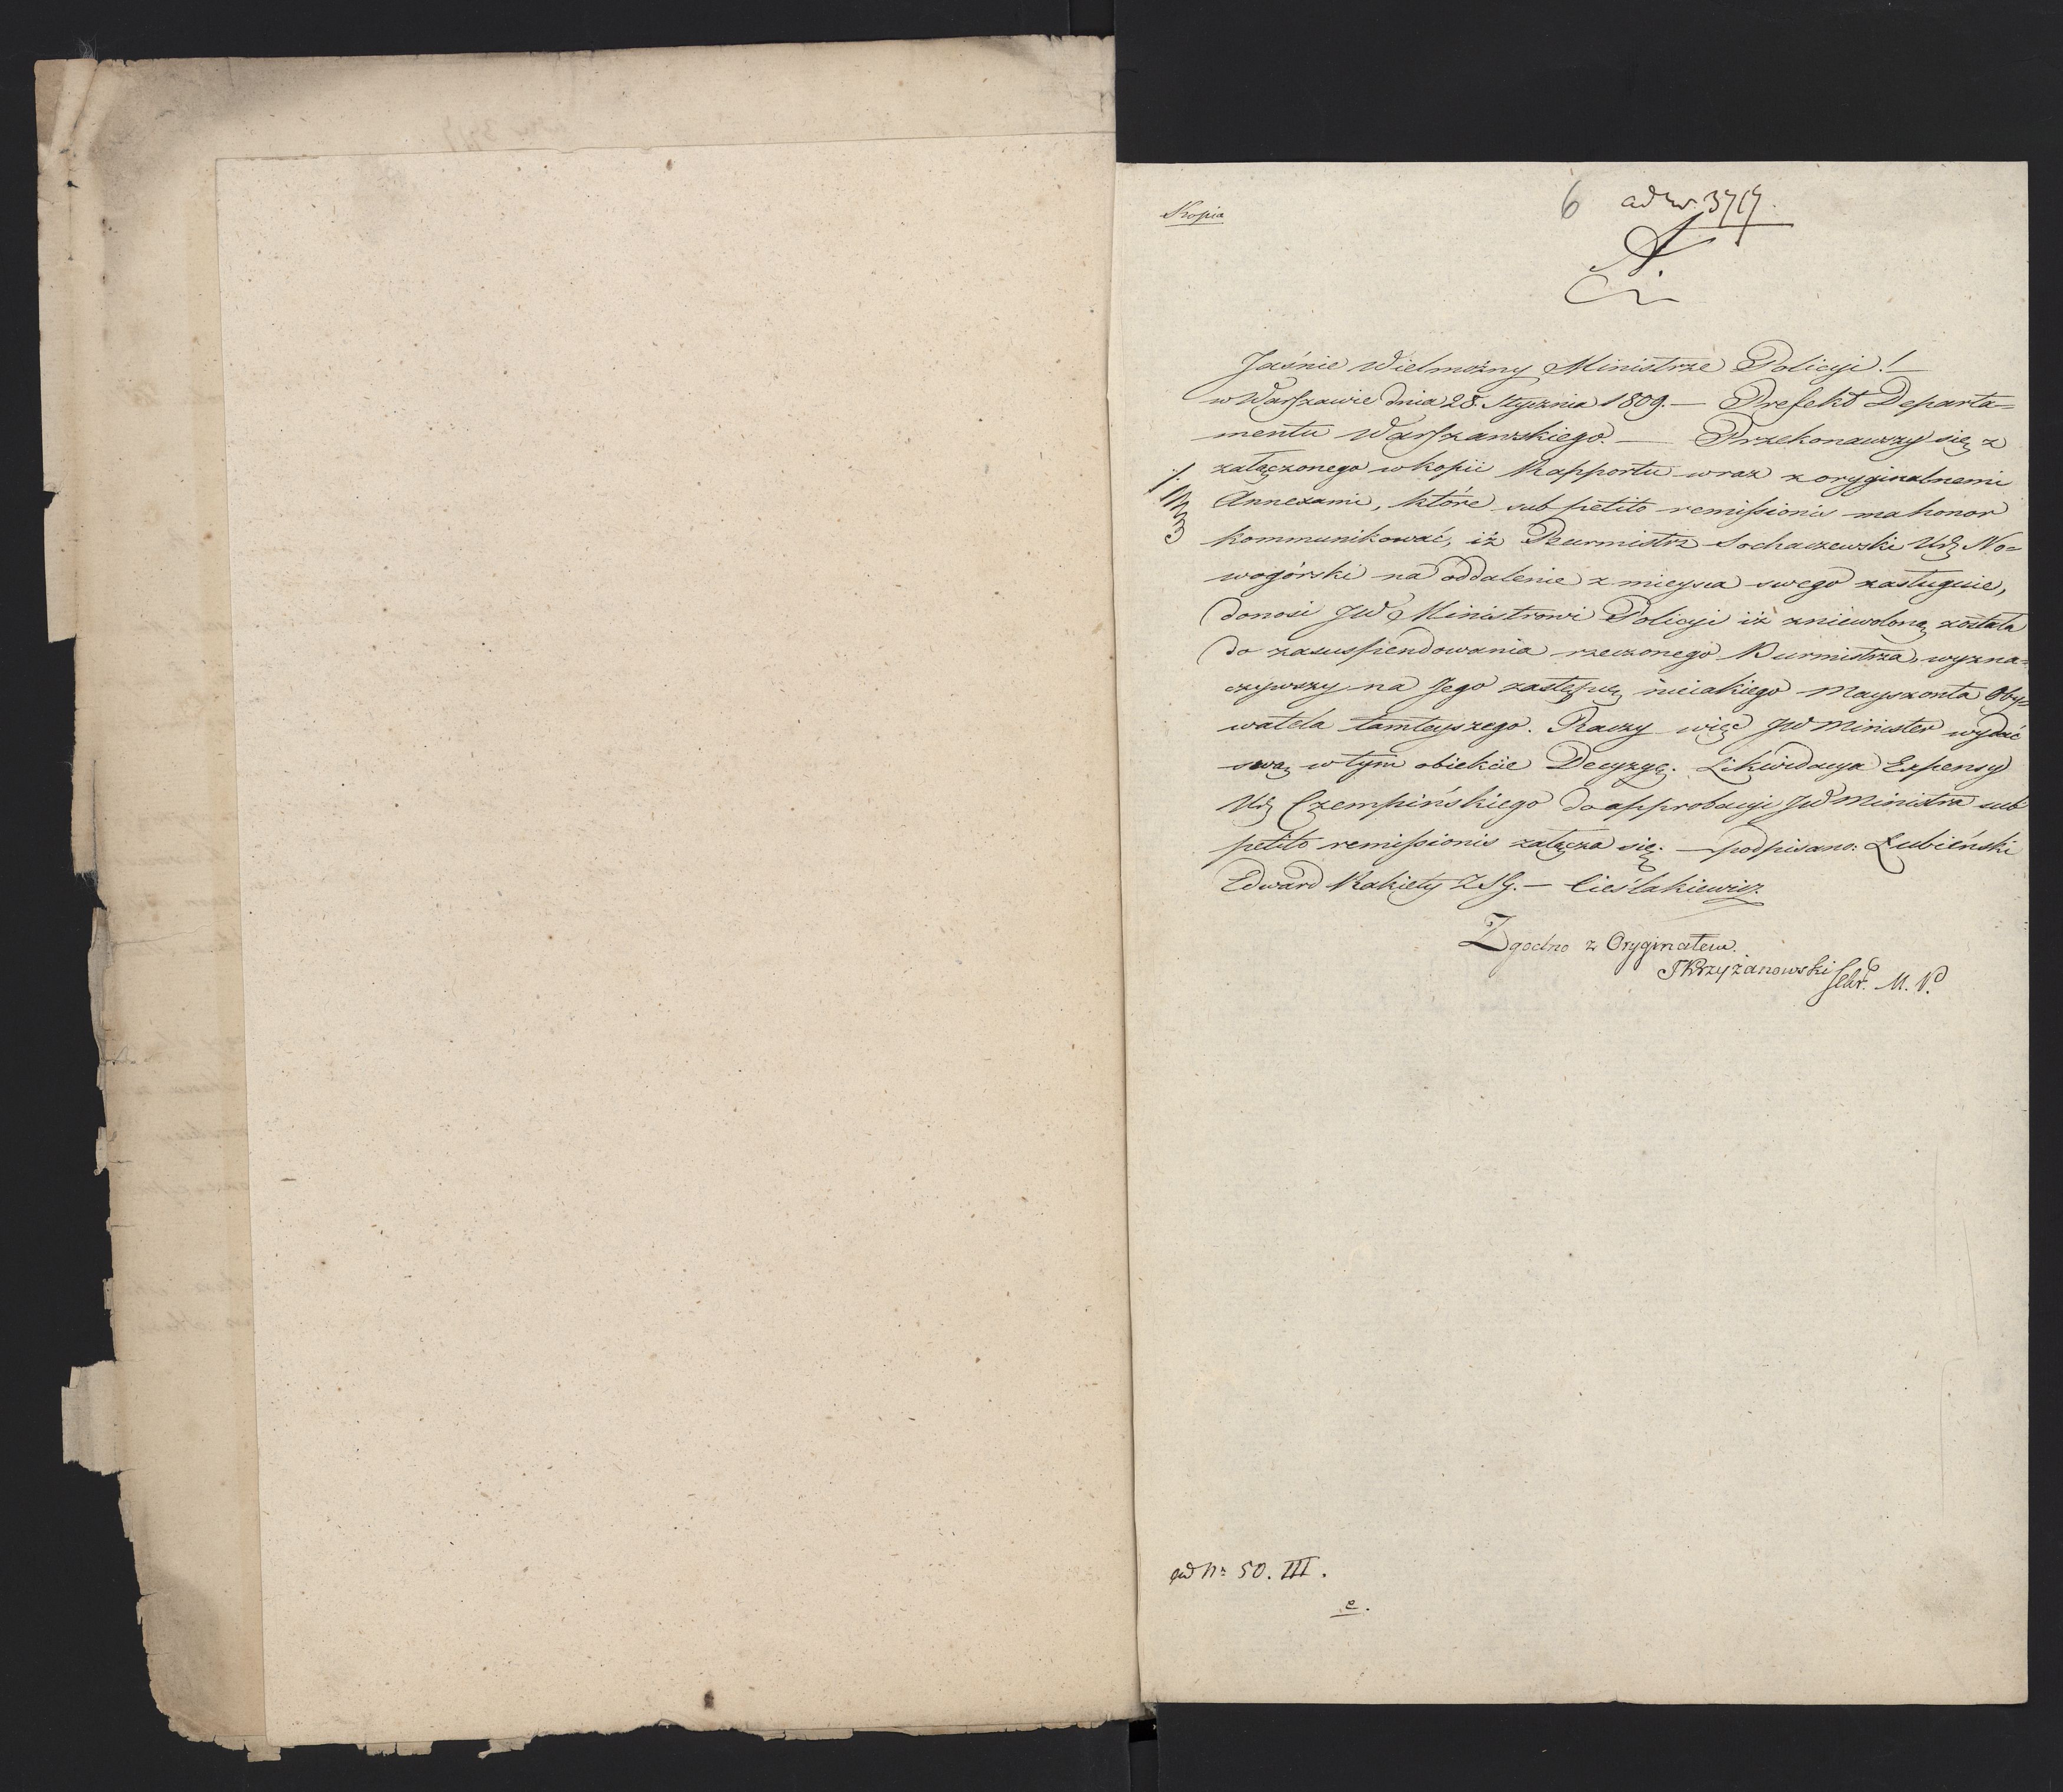 Kopia
6 ad nr. 3717.
A.
Jaśnie Wielmożny Ministrze Policyi! —
w Warszawie dnia 28. Stycznia 1809. — Prefekt Departa=
mentu Warszawskiego. — Przekonawszy się z
załączonego w kopii Rapportu wraz z oryginalnemi
Annexami, które sub petito remissionis ma honor
kommunikować, iż Burmistrz Sochaczewski Ur. No=
wogórski na oddalenie z mieysca swego zasługuie,
donosi JW Ministrowi Policyi iż zniewoloną została
do zasuspendowania rzeczonego Burmistrza, wyzna=
czywszy na Jego zastępcę nieiakiego Mayszonta Oby=
watela tamteyszego. Raczy więc JW Minister wydać
swą w tym obiekcie Decyzyę. Likwidacya Expensy
Ur. Czempińskiego do approbacyi JW Ministra sub
petito remissionis załącza się. — podpisano: Łubieński
Edward Rakiety ZSG. — Cieślakiewicz
Zgodno z Oryginałem.
Krzyżanowski Sekr. M. P.
ad Nr 50. III.
e.